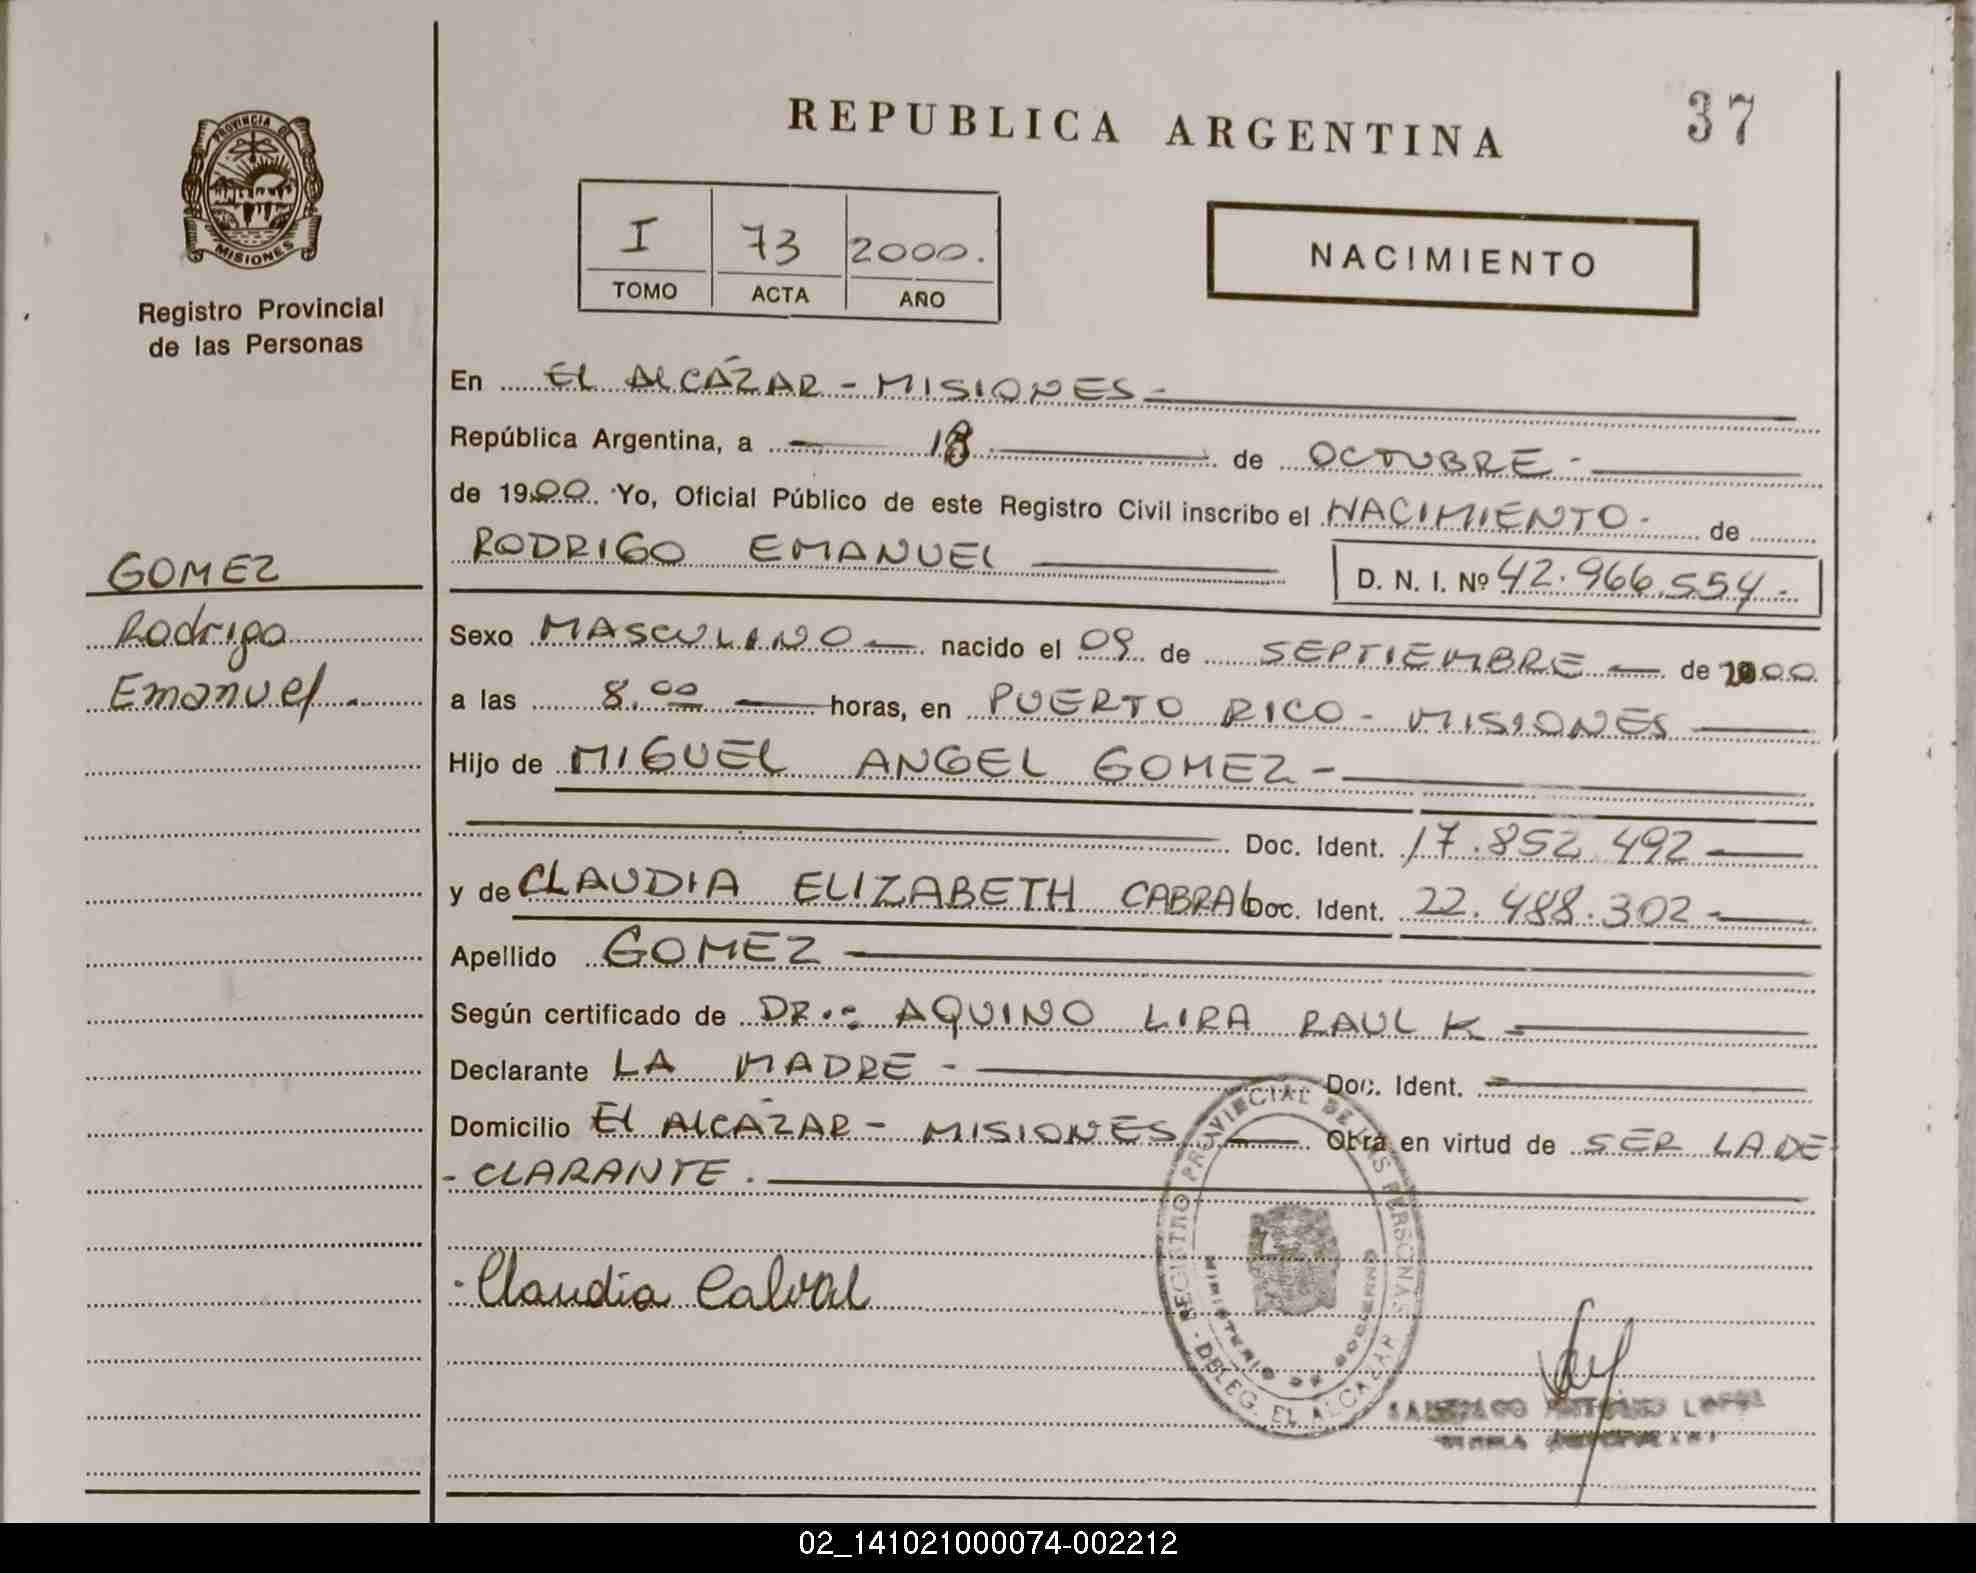 REPUBLICA ARGENTINA
37
PROVINCIA DE
MISIONES
Registro Provincial
de las Personas
I 73 2000.
TOMO ACTA AÑO
NACIMIENTO
En EL ALCÁZAR - MISIONES -
República Argentina, a 18 de OCTUBRE -
de 1900 Yo, Oficial Público de este Registro Civil inscribo el NACIMIENTO - de
RODRIGO EMANUEL D. N. I. Nº 42.966.554 -
GOMEZ
Rodrigo
Emanuel
Sexo MASCULINO nacido el 09 de SEPTIEMBRE de 2000
a las 8.00 horas, en PUERTO RICO - MISIONES
Hijo de MIGUEL ANGEL GOMEZ -
Doc. Ident. 17.852.492
y de CLAUDIA ELIZABETH CABRAL Doc. Ident. 22.488.302 -
Apellido GOMEZ
Según certificado de DR.: AQUINO LIRA RAUL K
Declarante LA MADRE - Doc. Ident.
Domicilio El ALCÁZAR - MISIONES Obra en virtud de SER LA DE
- CLARANTE.
REGISTRO PROVINCIAL DE LAS PERSONAS
MINISTERIO DE GOBIERNO
DELEG. EL ALCAZAR
Claudia Cabral
ANTONIO
02_141021000074-002212